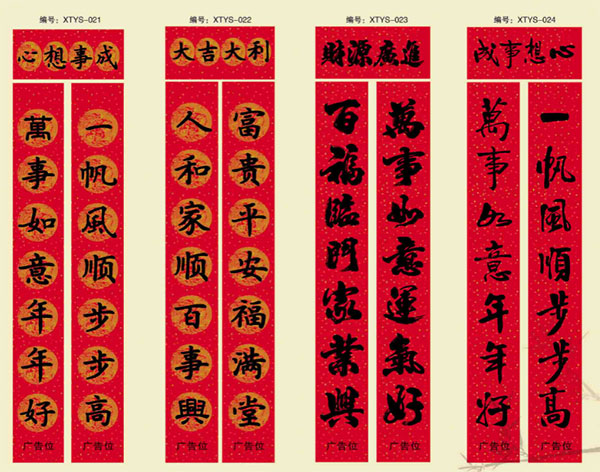 编号：XTYS-021
心想事成
一帆風顺步步高
广告位
萬事如意年年好
广告位
编号：XTYS-022
大吉大利
富贵平安福满堂
广告位
人和家顺百事興
广告位
编号：XTYS-023
財源廣進
萬事如意運氣好
广告位
百福臨門家業興
广告位
编号：XTYS-024
心想事成
一帆風順步步高
广告位
萬事如意年年好
广告位